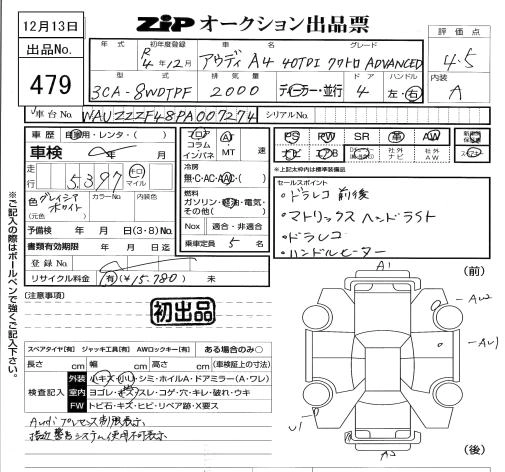 12月13日
出品No.
479
ZIP オークション出品票
評価点
4.5
内装
A
年式 初年度登録 車名 グレード
R4年12月 アウディ A4 40TDI クワトロ ADVANCED
型式 排気量 ドア ハンドル
3CA-8WDTPF 2000 ディーラー・並行 4 左・右
車台No. WAUZZZF48PA007274 シリアルNo.
車歴 自家用・レンタ・( )
車検 年 月
走行 5,397 キロ マイル
色 グレイシアホワイト (元色) カラーNo. 内装色
予備検 年 月 日(3・8)No.
書類有効期限 年 月 日迄
登録No.
リサイクル料金 有(¥15.780) 未
フロア コラム インパネ
AT MT 速
冷房
無・C・AC・AAC・( )
燃料
ガソリン・軽油・電気・その他( )
Nox 適合・非適合
乗車定員 5 名
PS PW SR 革 AW 新車時保証書
ナビ エアB 社外ナビ 社外AW
※上記太枠内は標準装備品
セールスポイント
・ドラレコ 前後
・マトリックスヘッドライト
・ドラレコ
・ハンドルヒーター
※ご記入の際はボールペンで強くご記入下さい。
(注意事項)
初出品
スペアタイヤ[有] ジャッキ工具[有] AWロックキー[有] ある場合のみ○
長さ cm 幅 cm 高さ cm (車検証上の寸法)
検査記入
外装 小キズ・小凹・シミ・ホイルA・ドアミラー(A・ワレ)
室内 ヨゴレ・キズ・スレ・コゲ・穴・キレ・破れ・ウキ
FW トビ石・キズ・ヒビ・リペア跡・X要ス
Audiプレセンス制限表示
指定警告システム使用不可表示
(前)
A1
AW2
AW1
U1
A2
(後)